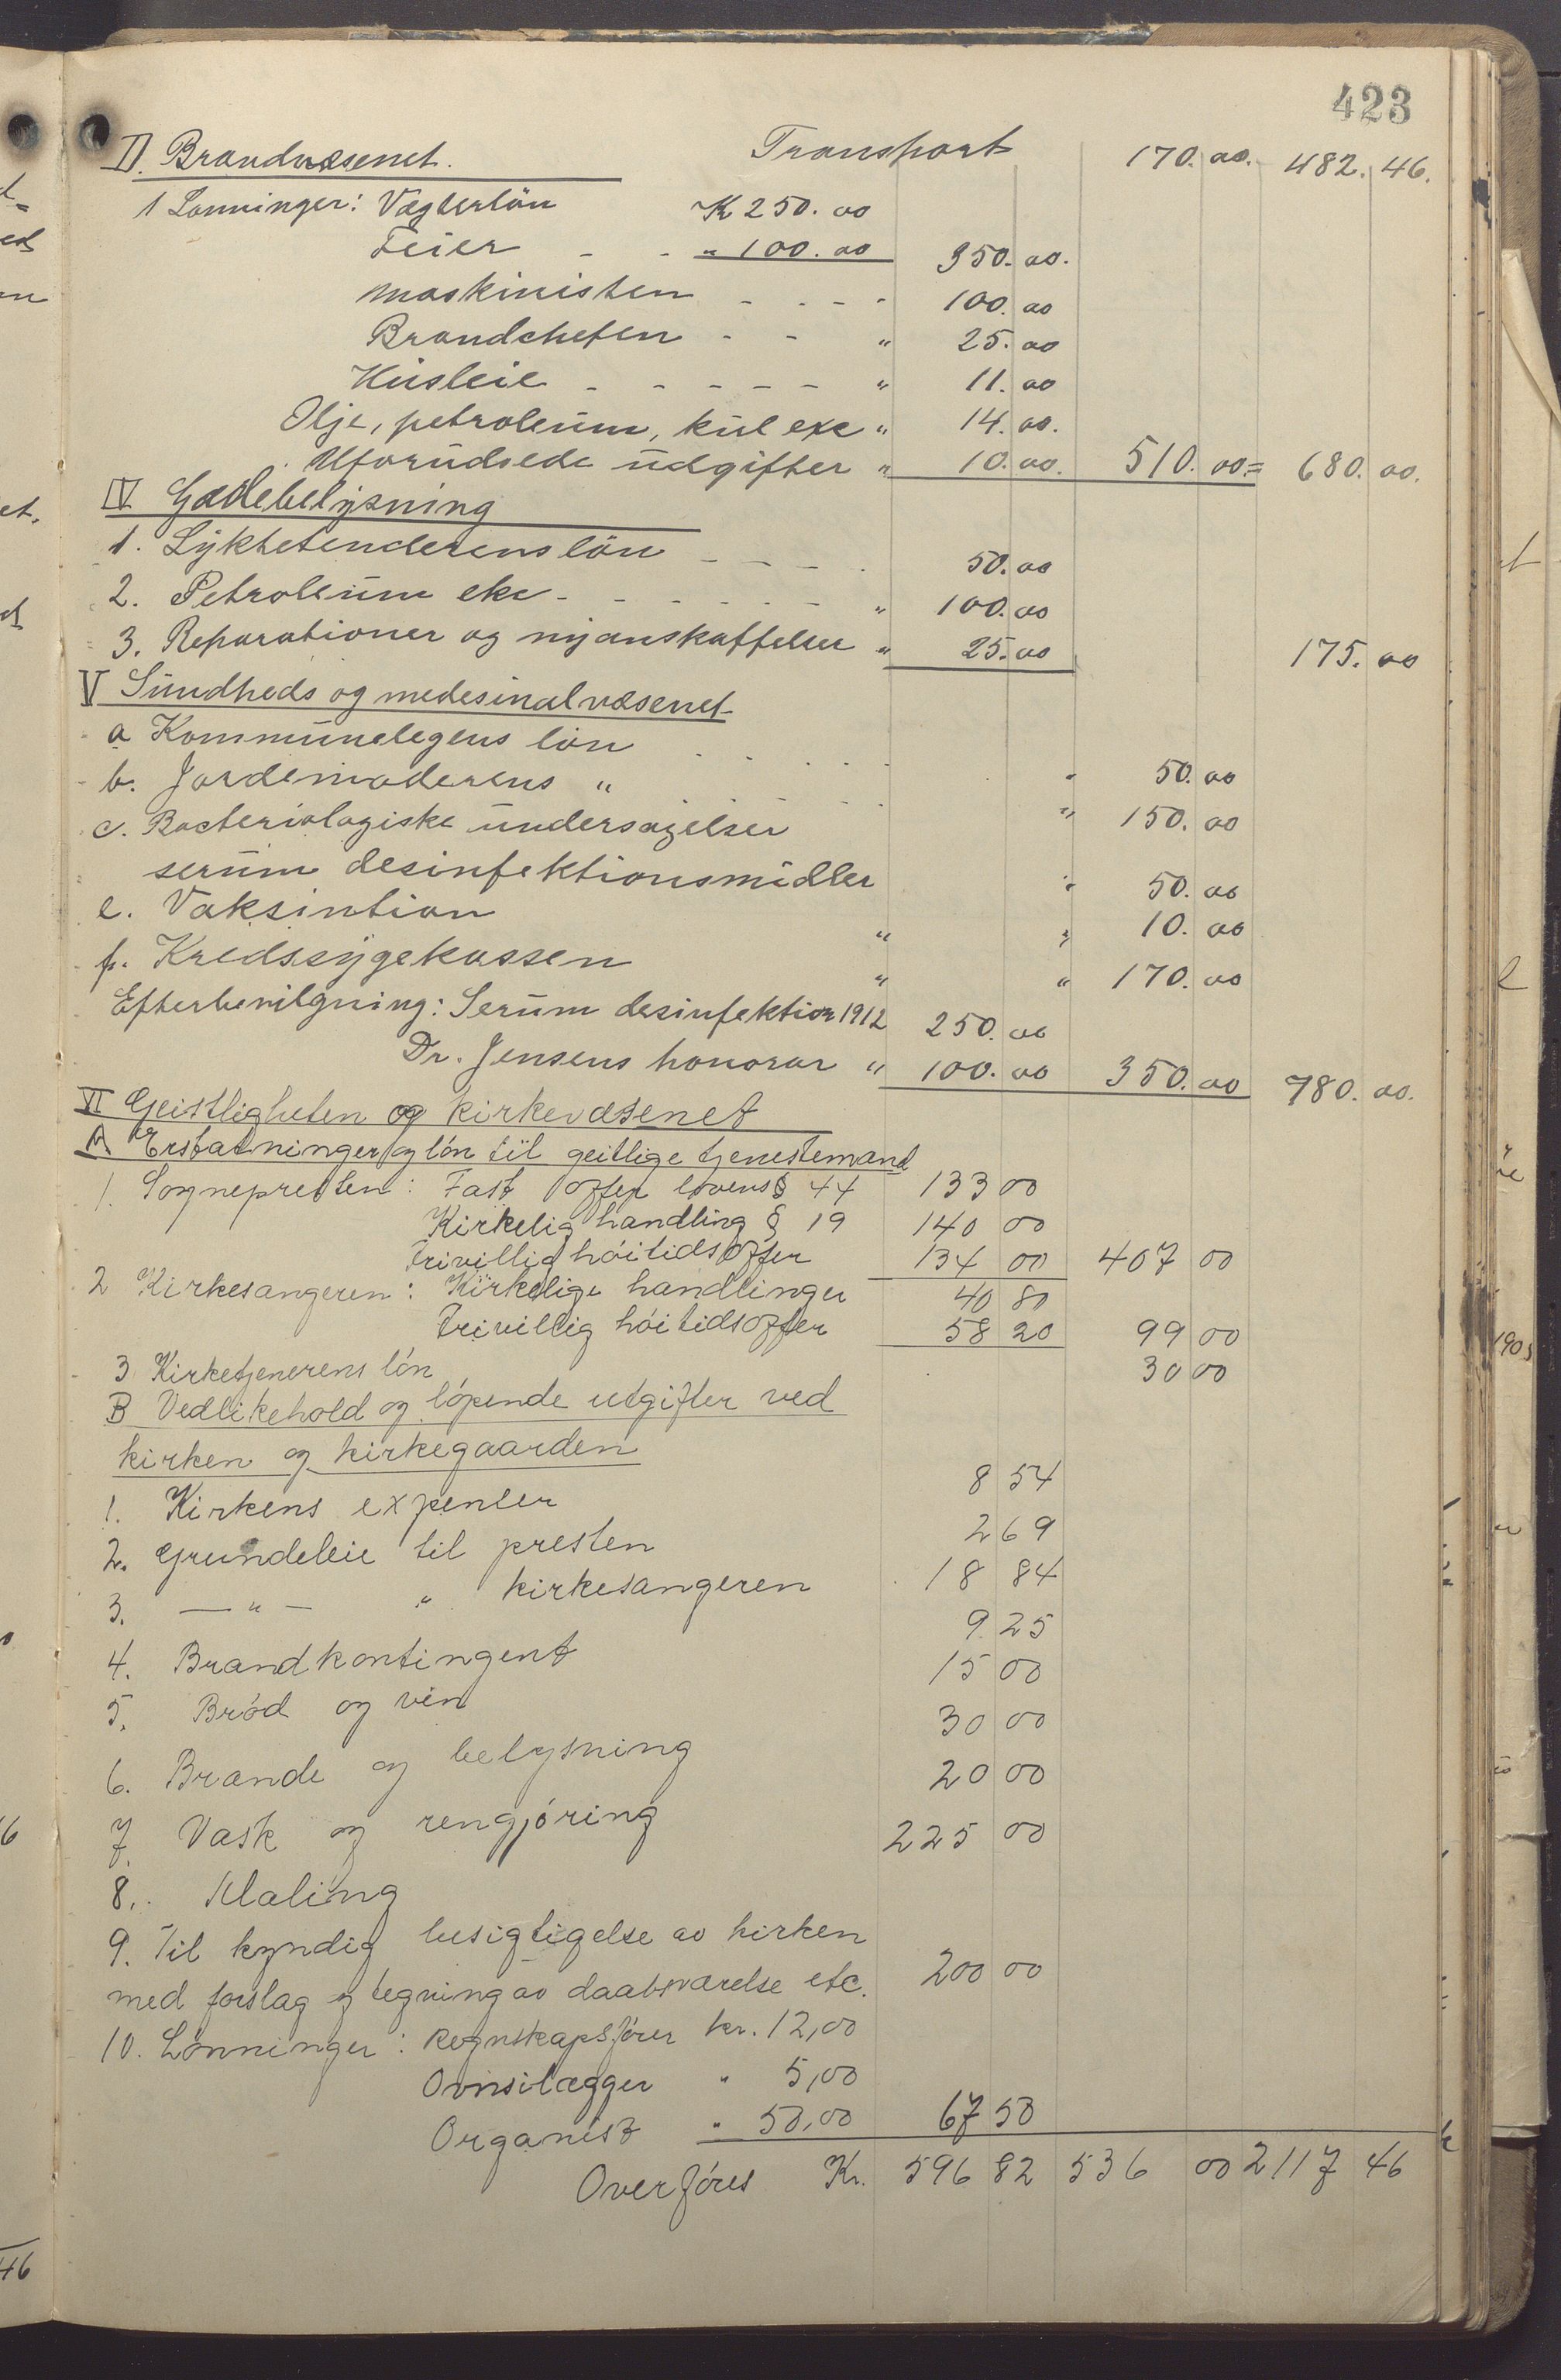 423
D. Brandvæsenet. Transport 170.00. 482.46.
1 Lønninger: Vægterløn Kr 250.00
Feier - - " 100.00 350.00.
Maskinisten - - - - 100.00
Brandchefen - - " 25.00
Husleie - - - - - " 11.00
Olje, petroleum, kul exc " 14.00.
Uforudsede udgifter " 10.00. 510.00= 680.00.
IV Gadebelysning
1. Lyktetenderens løn - - - - 50.00
2. Petroleum ekc - - - - - - " 100.00
3. Reparationer og nyanskaffelser " 25.00 175.00
V Sundheds og medesinalvæsenet
a Kommunelegens løn - - - - - " 50.00
b. Jordemoderens " - - - - " 150.00
c. Bacteriologiske undersøgelser
serum desinfektionsmidler " 50.00
e. Vaksintion " " 10.00
f. Kredssygekassen " " 170.00
Efterbevilgning: Serum desinfektion 1912 250.00
Dr. Jensens honorar " 100.00 350.00 780.00.
VI Geistligheten og kirkevæsenet
A Erstatninger og løn til geitlige tjenestemænd
1. Sognepresten: Fast offer lovens § 44 133 00
Kirkelig handling § 19 140 00
Frivillig høitidsoffer 134 00 407 00
2 Kirkesangeren: Kirkelige handlinger 40 80
Frivillig høitidsoffer 58 20 99 00
3 Kirketjenerens løn 30 00
B Vedlikehold og løpende utgifter ved
kirken og kirkegaarden
1. Kirkens expenser 8 54
2. Grundeleie til presten 2 69
3. —"— " kirkesangeren 18 84
4. Brandkontingent 9 25
5. Brød og vin 15 00
6. Brænde og belysning 30 00
7. Vask og rengjøring 20 00
8. Maling 225 00
9. Til kyndig besigtigelse av kirken
med forslag og tegning av daabsværelse etc. 200 00
10. Lønninger: Regnskapsfører kr. 12,00
Ovnsilægger " 5,00
Organist " 50,00 67 50
Overføres Kr. 596 82 536 00 2117 46